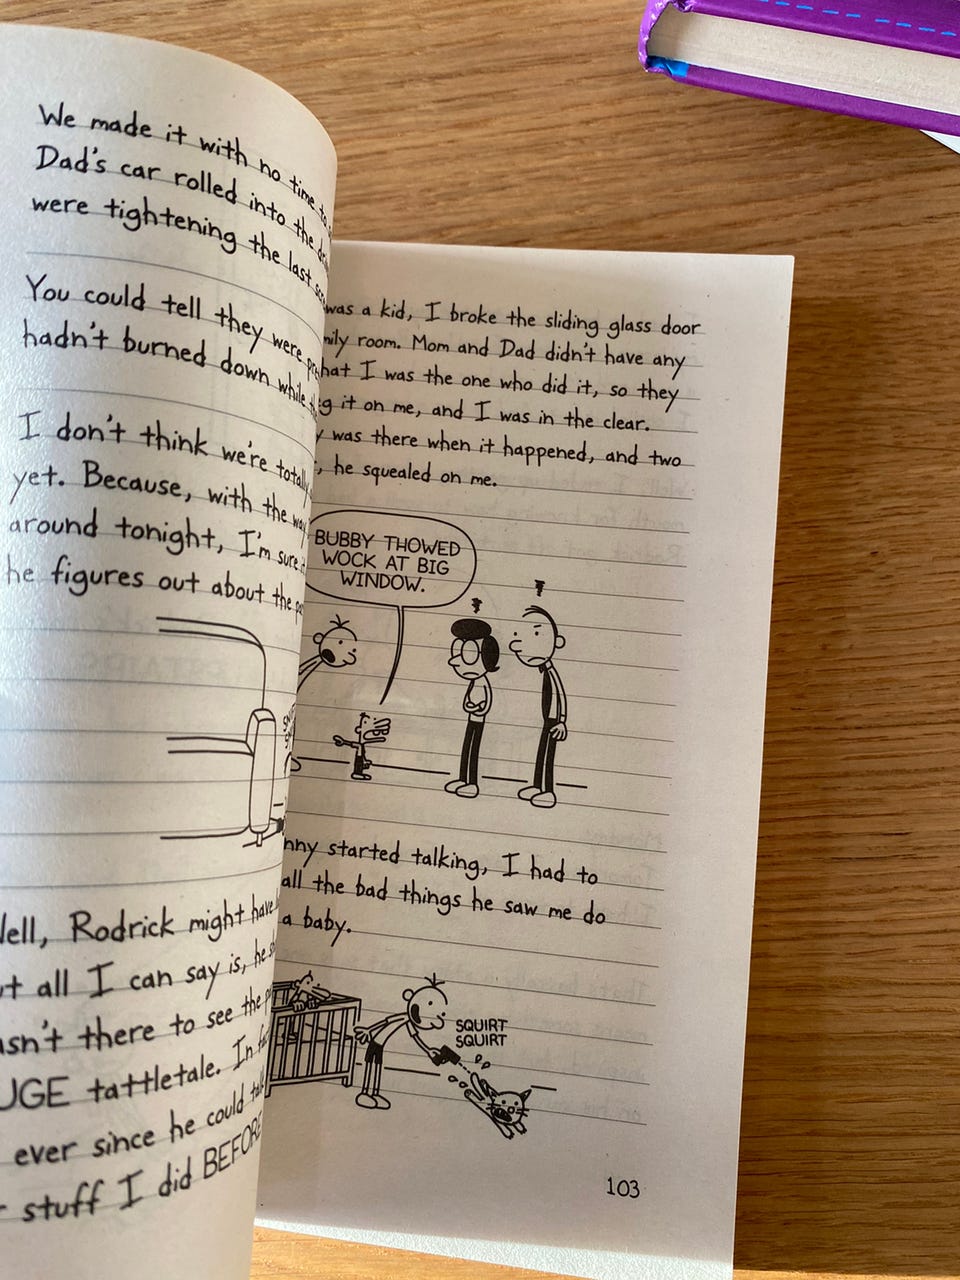 We made it with no time to
Dad's car rolled into the
were tightening the last
You could tell they were
hadn't burned down while
I don't think we're totally
yet. Because, with the way
around tonight, I'm sure
he figures out about the
Rodrick might have
all I can say is, he
wasn't there to see the
HUGE tattletale. In
ever since he could
stuff I did BEFORE
was a kid, I broke the sliding glass door
room. Mom and Dad didn't have any
that I was the one who did it, so they
it on me, and I was in the clear.
was there when it happened, and two
, he squealed on me.
BUBBY THOWED
WOCK AT BIG
WINDOW.
started talking, I had to
all the bad things he saw me do
a baby.
SQUIRT
SQUIRT
103